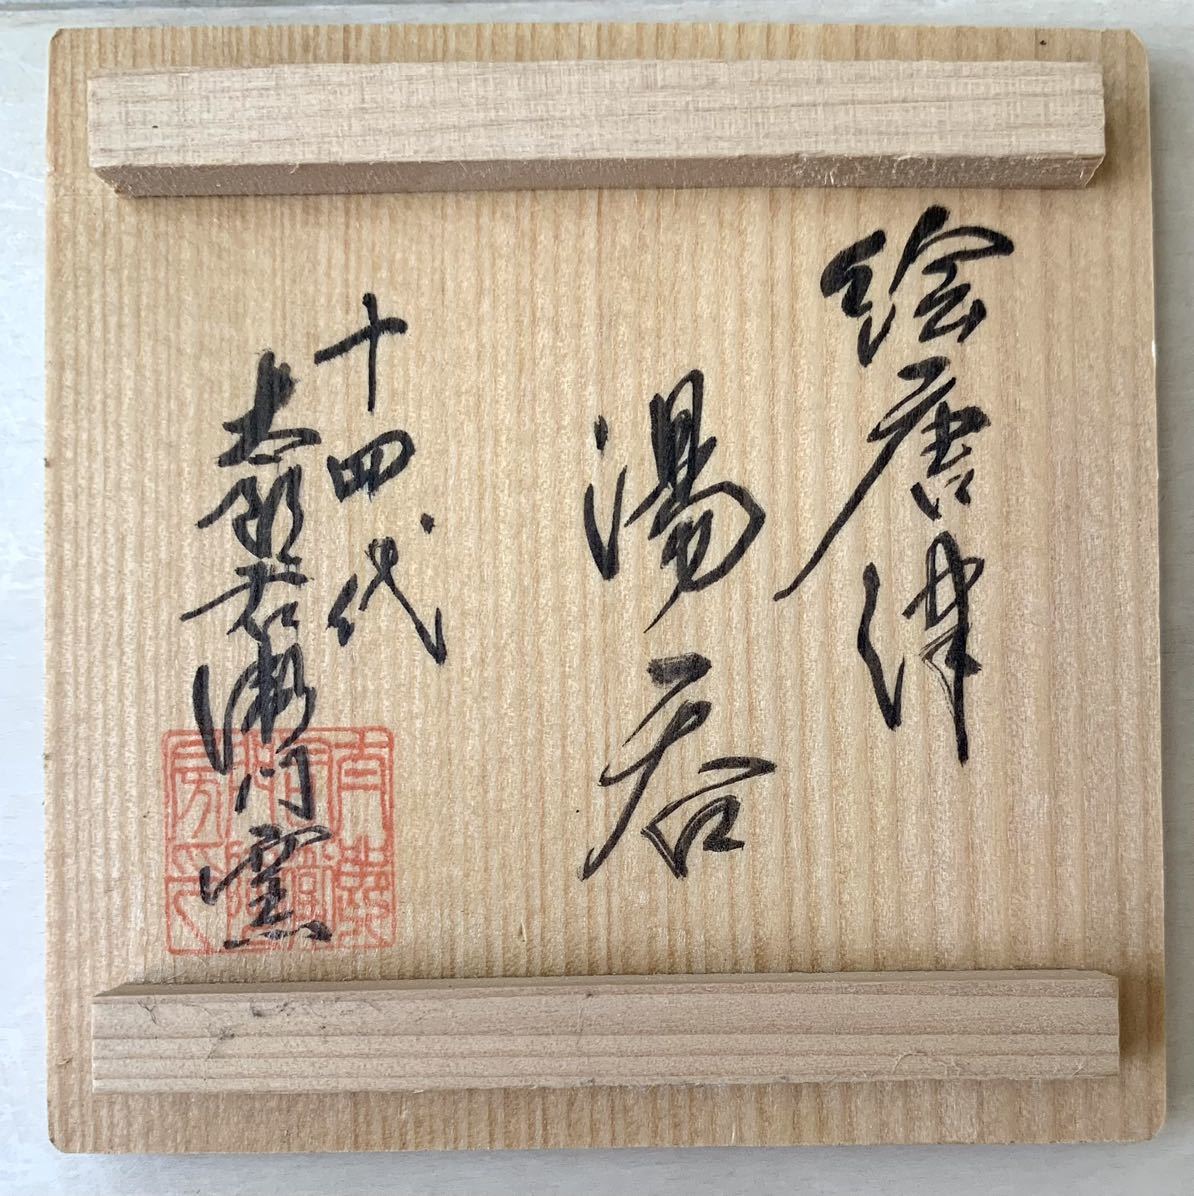 絵唐津
湯呑
十四代
太郎右衛門窯